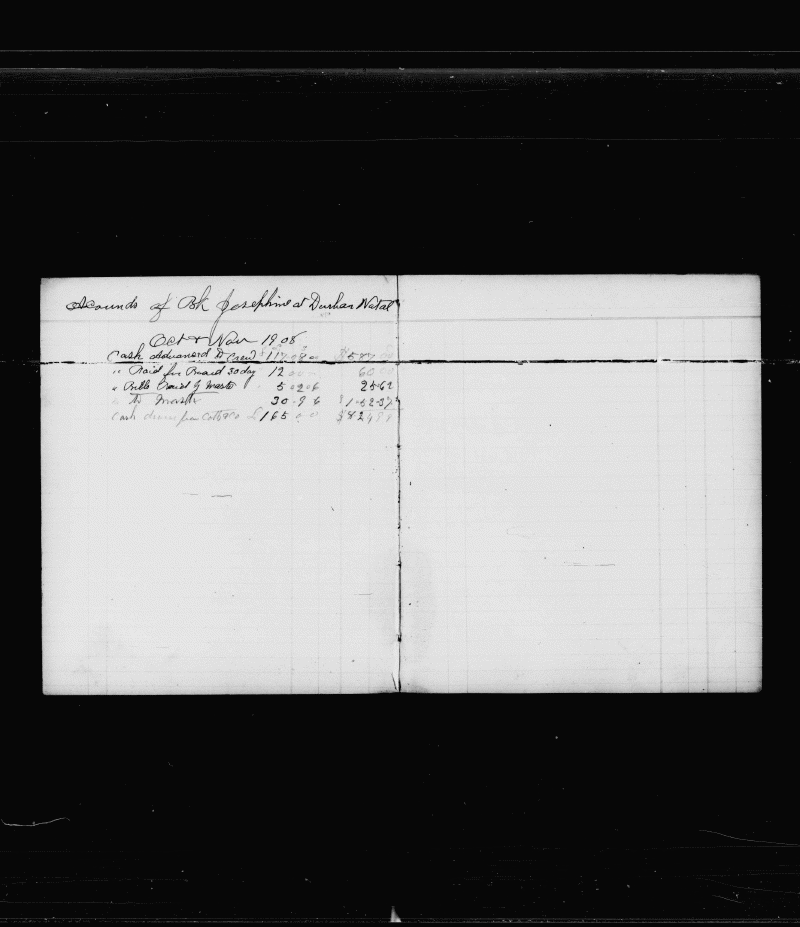 Acounds of Bk Josephine at Durban Natal
Oct & Nov 1908
Cash advanced to Crew 117 $587
" Paid for Board 30 day 12 00 60 00
" Bills Paid by Master 5 02 6 25-62
" to Master 30-9 6 $152-37
Cash drawn from £165 0 0 $824